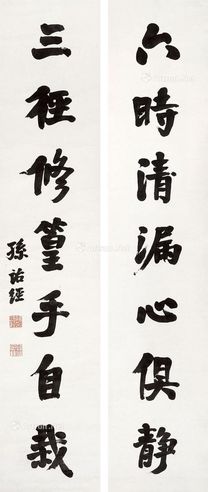 六時清漏心俱静
三徑修篁手自栽
孫詒經